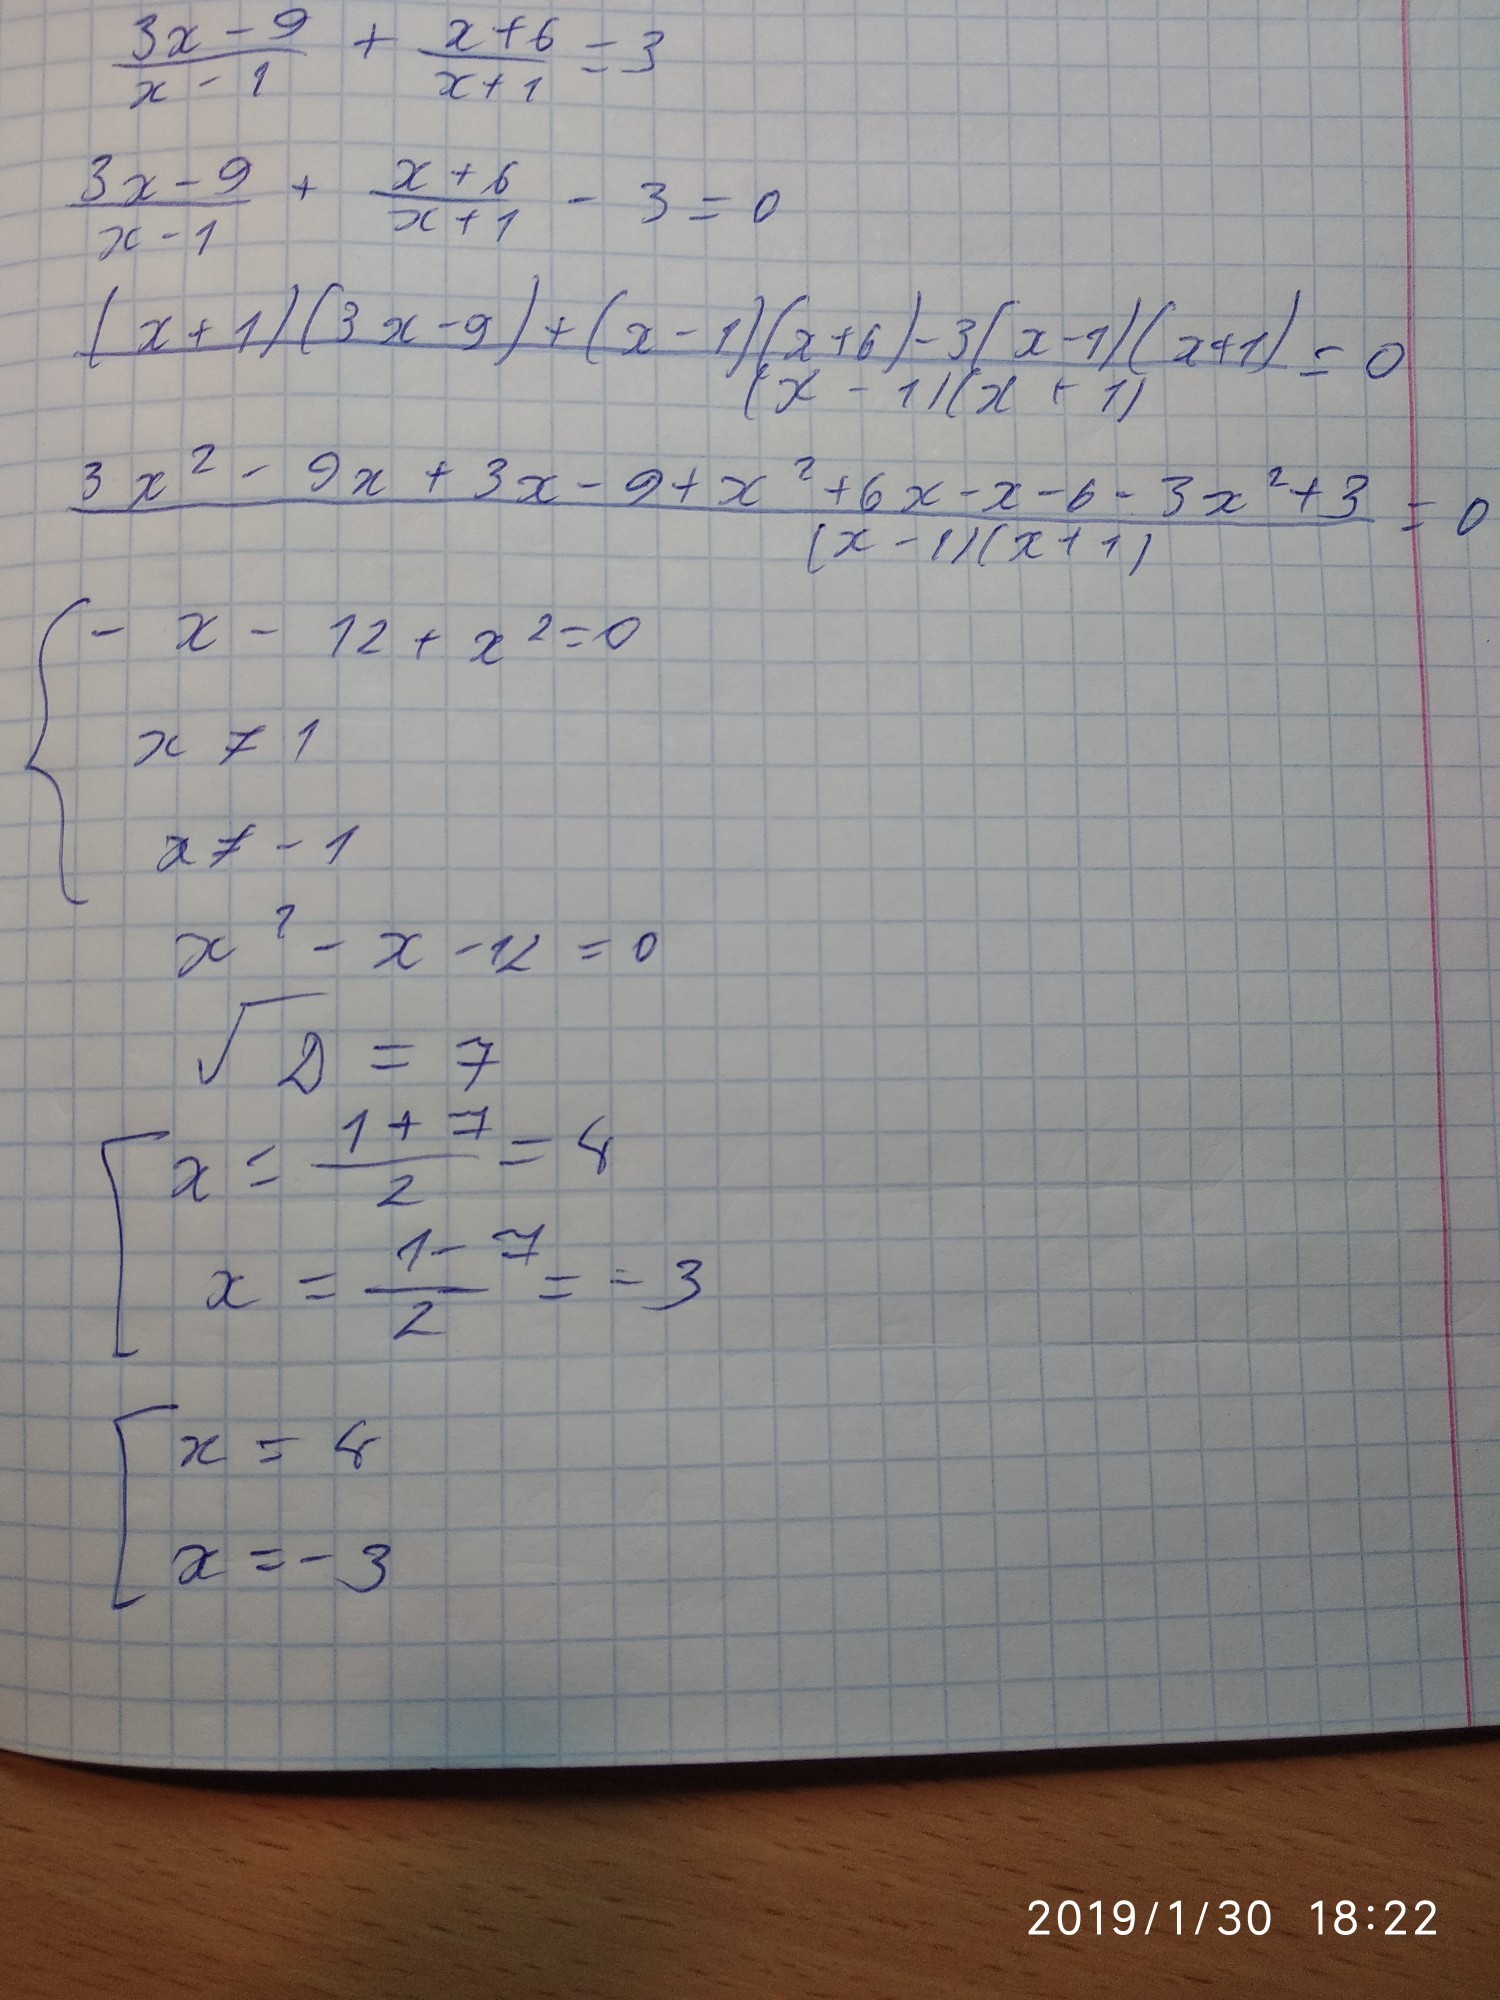 (3x-9)/(x-1) + (x+6)/(x+1) = 3
(3x-9)/(x-1) + (x+6)/(x+1) - 3 = 0
((x+1)(3x-9)+(x-1)(x+6)-3(x-1)(x+1))/((x-1)(x+1)) = 0
(3x²-9x+3x-9+x²+6x-x-6-3x²+3)/((x-1)(x+1)) = 0
{ -x-12+x²=0
x≠1
x≠-1
x²-x-12=0
√D = 7
[ x = (1+7)/2 = 4
x = (1-7)/2 = -3
[ x = 4
x = -3
2019/1/30 18:22